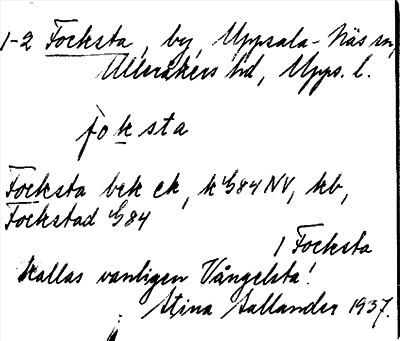 1-2 Focksta, by, Uppsala-Näs sn,
Ulleråkers hd, Upps. l.
foksta
Focksta bek ek, k G84 NV, kb,
Fockstad G84
1 Focksta
kallas vanligen Vångelsta!
Stina Sallander 1937.